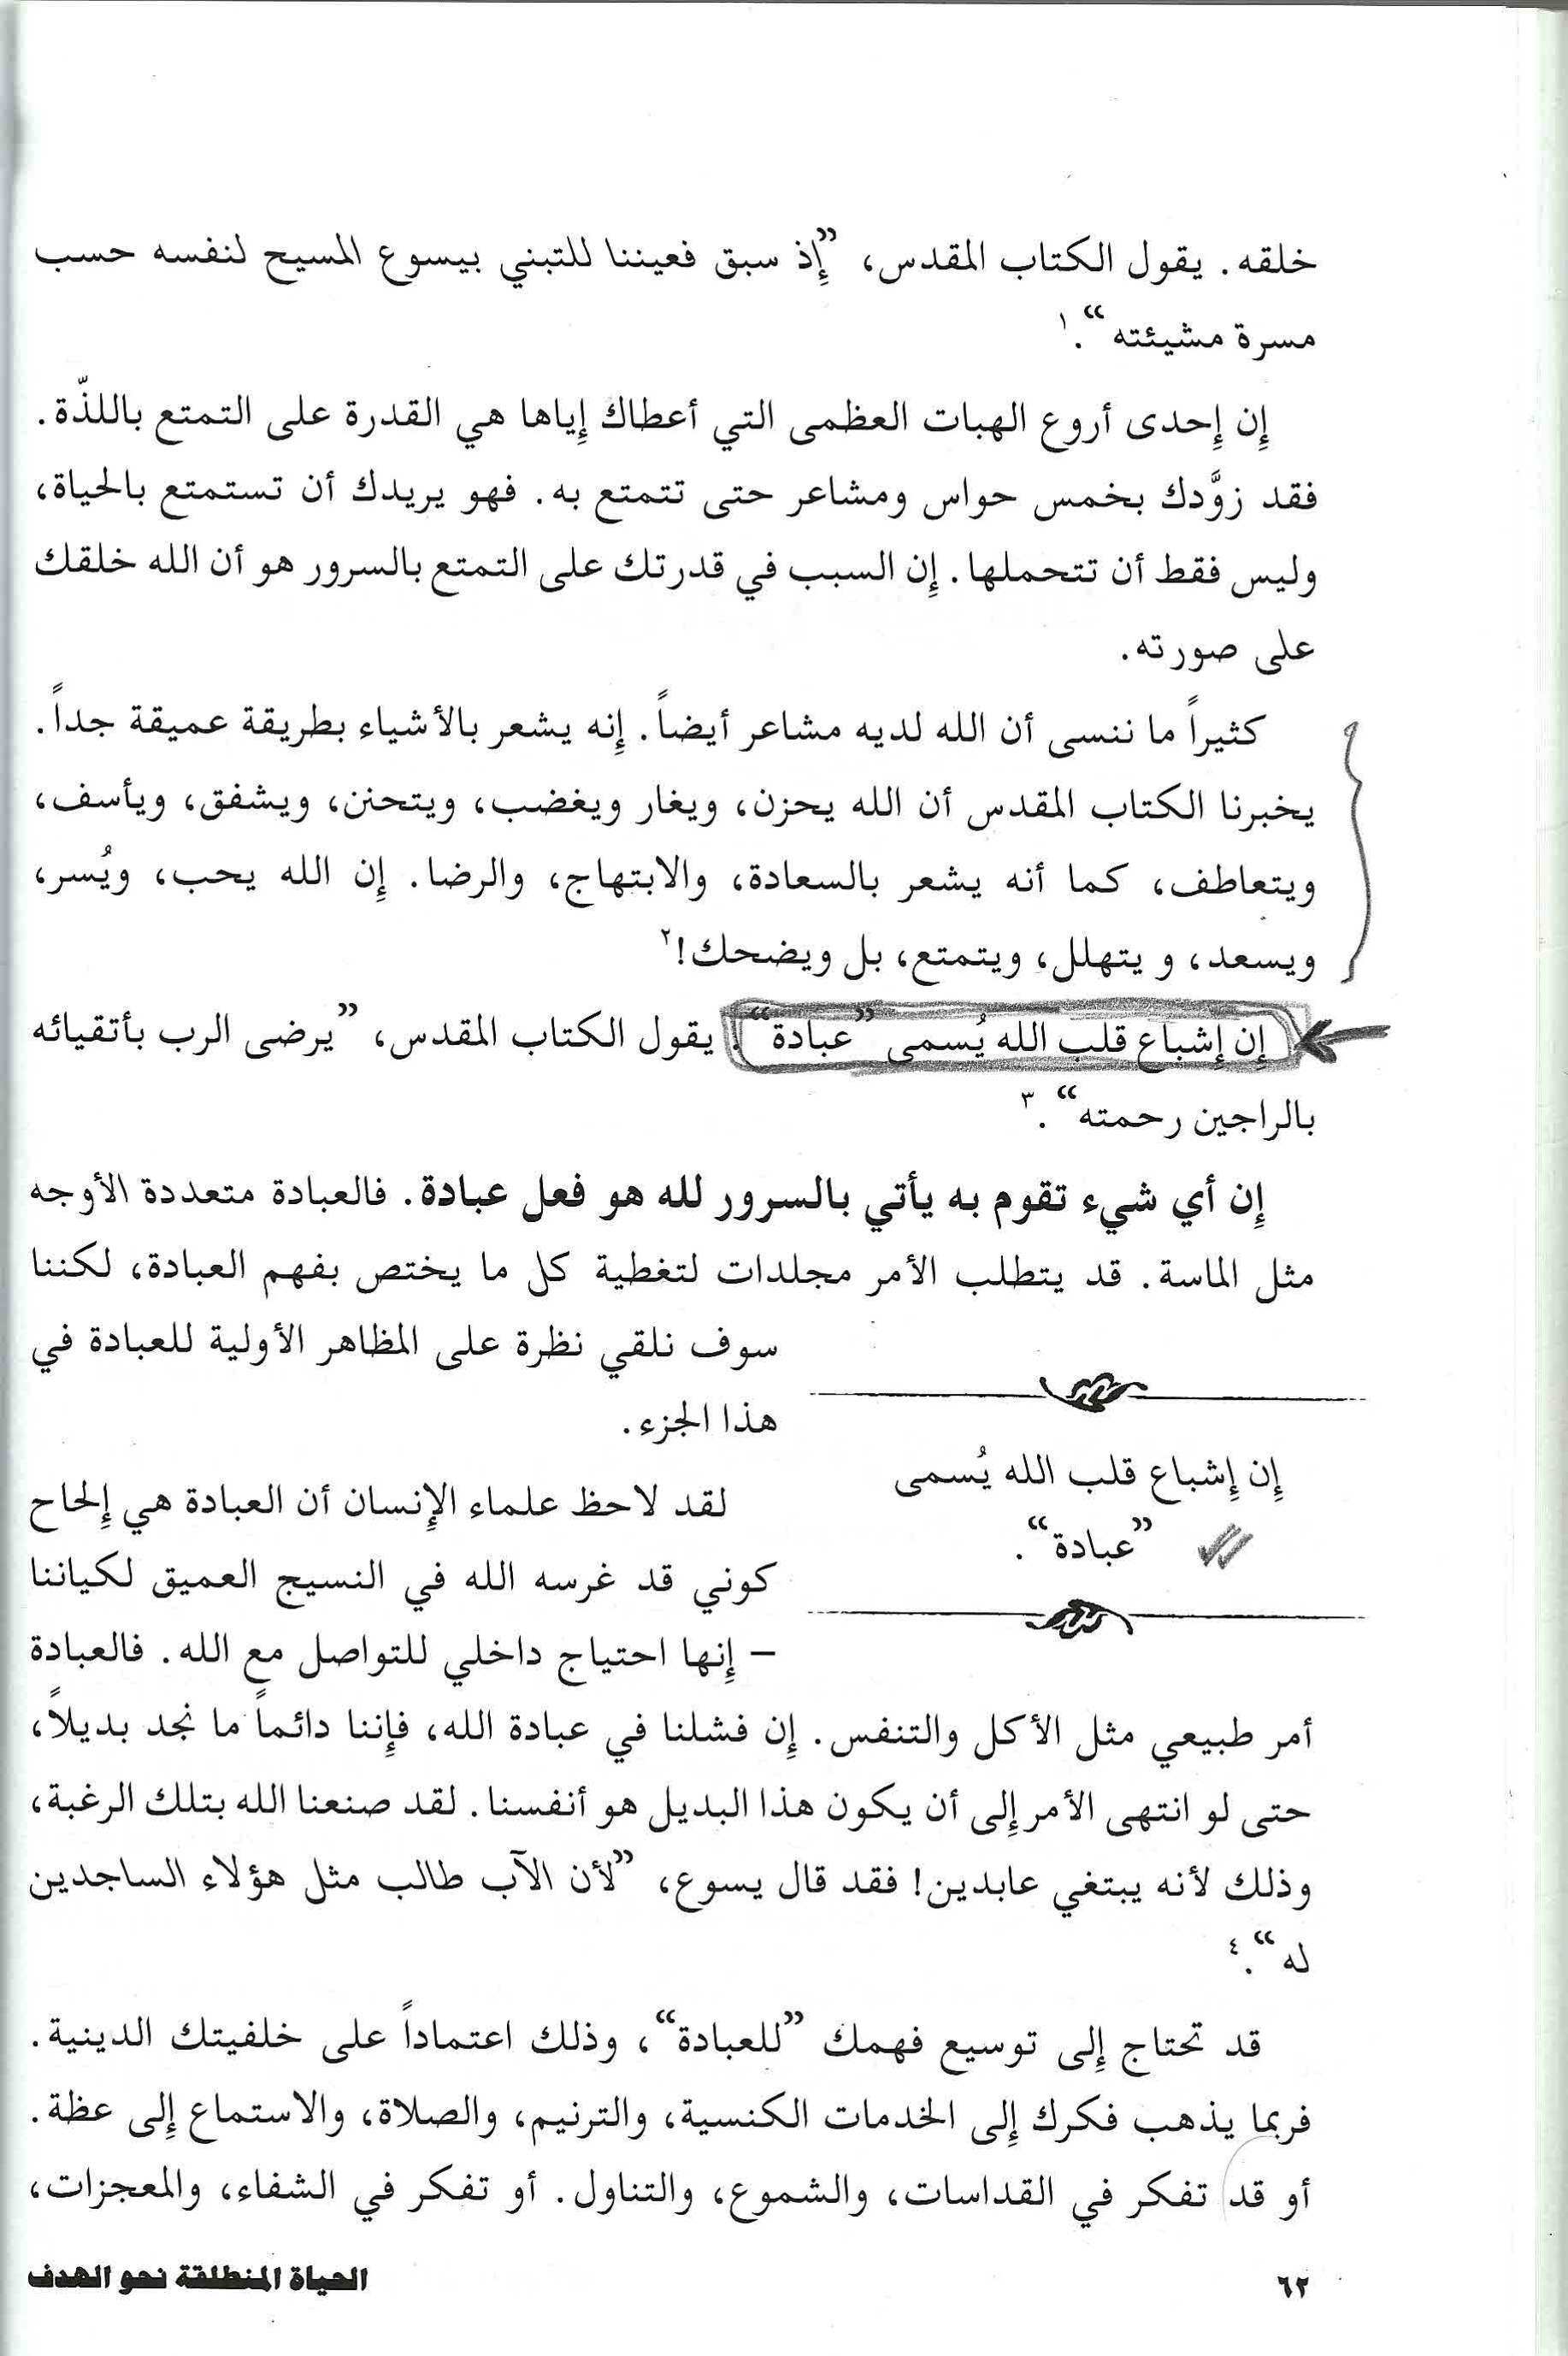 خلقه. يقول الكتاب المقدس، ”إِذ سبق فعيننا للتبني بيسوع المسيح لنفسه حسب
مسرة مشيئته“.١
إِن إِحدى أروع الهبات العظمى التي أعطاك إِياها هي القدرة على التمتع باللذّة.
فقد زوَّدك بخمس حواس ومشاعر حتى تتمتع به. فهو يريدك أن تستمتع بالحياة،
وليس فقط أن تتحملها. إِن السبب في قدرتك على التمتع بالسرور هو أن الله خلقك
على صورته.
كثيراً ما ننسى أن الله لديه مشاعر أيضاً. إِنه يشعر بالأشياء بطريقة عميقة جداً.
يخبرنا الكتاب المقدس أن الله يحزن، ويغار ويغضب، ويتحنن، ويشفق، ويأسف،
ويتعاطف، كما أنه يشعر بالسعادة، والابتهاج، والرضا. إِن الله يحب، ويُسر،
ويسعد، و يتهلل، ويتمتع، بل ويضحك!٢
إِن إِشباع قلب الله يُسمى ”عبادة“. يقول الكتاب المقدس، ”يرضى الرب بأتقيائه
بالراجين رحمته“.٣
إِن أي شيء تقوم به يأتي بالسرور لله هو فعل عبادة. فالعبادة متعددة الأوجه
مثل الماسة. قد يتطلب الأمر مجلدات لتغطية كل ما يختص بفهم العبادة، لكننا
سوف نلقي نظرة على المظاهر الأولية للعبادة في
هذا الجزء.
إِن إِشباع قلب الله يُسمى
”عبادة“.
لقد لاحظ علماء الإِنسان أن العبادة هي إِلحاح
كوني قد غرسه الله في النسيج العميق لكياننا
– إِنها احتياج داخلي للتواصل مع الله. فالعبادة
أمر طبيعي مثل الأكل والتنفس. إِن فشلنا في عبادة الله، فإِننا دائماً ما نجد بديلاً،
حتى لو انتهى الأمر إِلى أن يكون هذا البديل هو أنفسنا. لقد صنعنا الله بتلك الرغبة،
وذلك لأنه يبتغي عابدين! فقد قال يسوع، ”لأن الآب طالب مثل هؤلاء الساجدين
له“.٤
قد تحتاج إِلى توسيع فهمك ”للعبادة“، وذلك اعتماداً على خلفيتك الدينية.
فربما يذهب فكرك إِلى الخدمات الكنسية، والترنيم، والصلاة، والاستماع إِلى عظة.
أو قد تفكر في القداسات، والشموع، والتناول. أو تفكر في الشفاء، والمعجزات،
٦٢ الحياة المنطلقة نحو الهدف